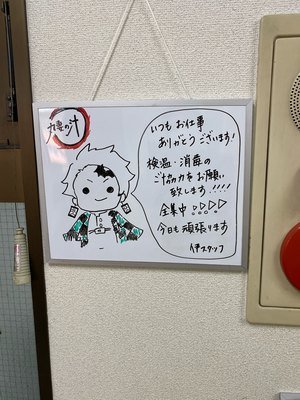 いつもお仕事
ありがとうございます！
検温・消毒の
ご協力をお願い
致します!!!!
全集中
今日も頑張ります